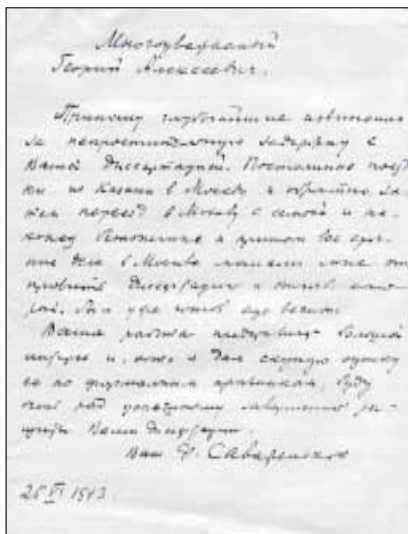 Многоуважаемый
Георгий Алексеевич.
Приношу глубочайшие извинения
за непростительную задержку с
Вашей диссертацией. Постоянные поезд
ки из Казани в Москву и обратно, за
тем переезд в Москву с семьей и на-
конец бесконечные и притом все
дела в Москве мешали мне от
править диссертацию и отзыв
был уже готов еще весной.
Ваша работа представляет большой
интерес и, хотя я дал скупую оценку
ее по формальным причинам, буду
очень рад успешному завершению за-
щиты Вашей диссертации.
Ваш Ф. Саваренский
26 VI 1943.